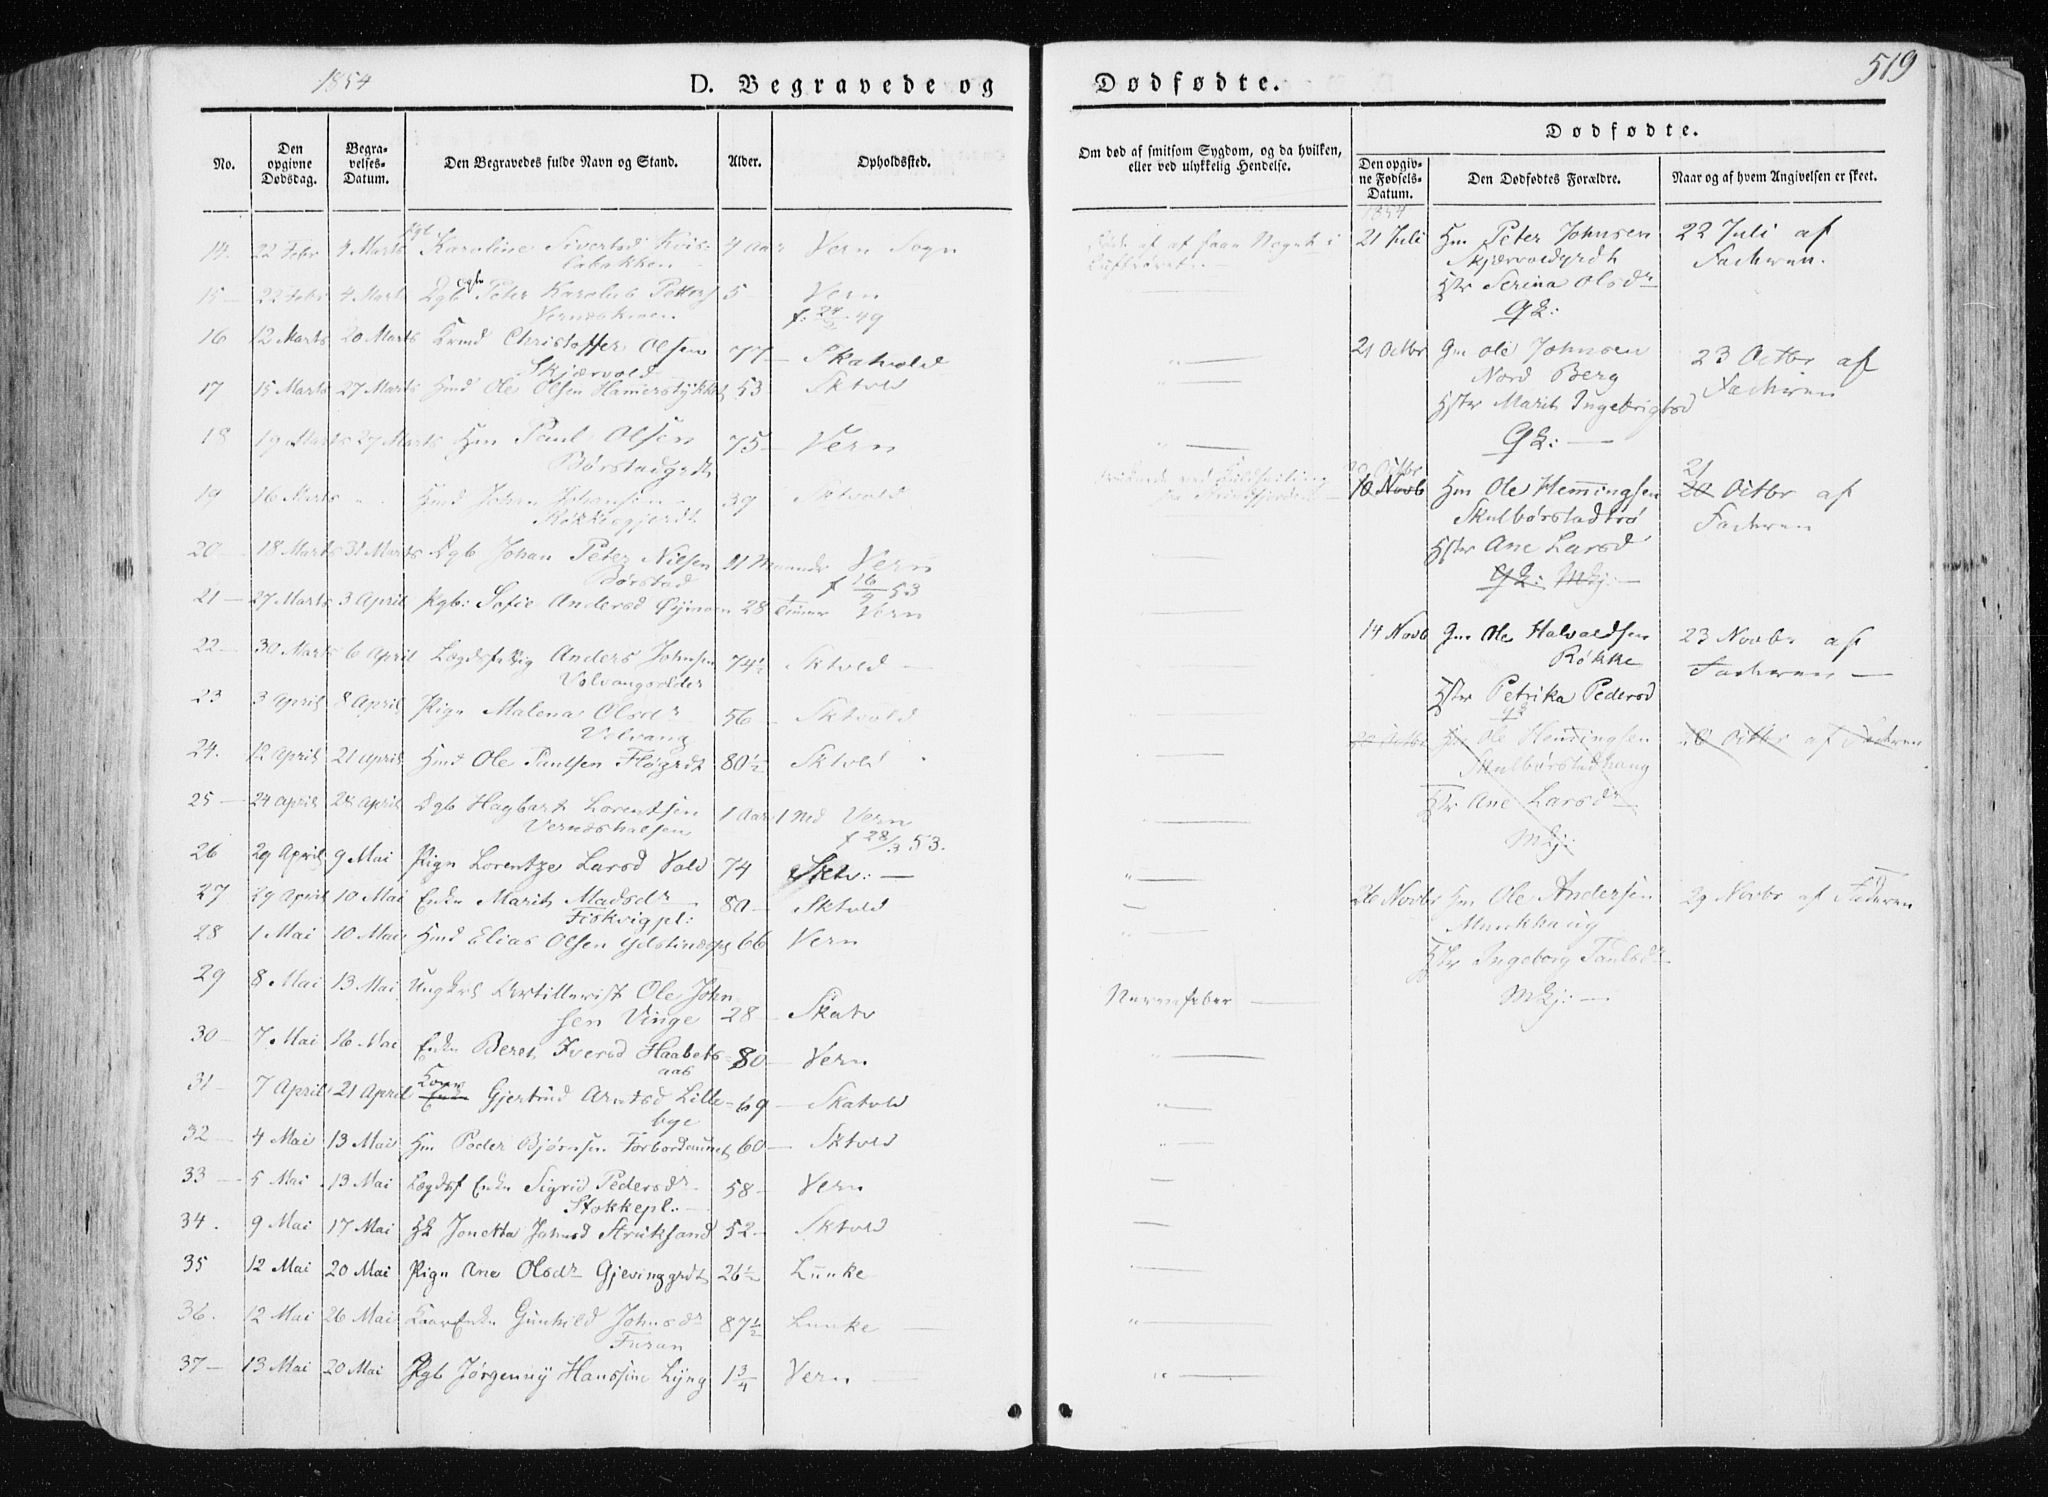 1854
D. Begravede og
No.
Den opgivne Dødsdag.
Begravelses-Datum.
Den Begravedes fulde Navn og Stand.
Alder.
Opholdssted.
14. 22 Febr 4 Marts Karoline Sivertsd 4 Aar Vern Sogn
15 22 Febr 4 Marts Dgb Peter Karolus 5 Vern
16 12 Marts 20 Marts Christoffer Olsen 77 Skatvold
Skjærvold
17 15 Marts 27 Marts Hmd Ole Olsen Hamerstykket 53 Sktvld
18 19 Marts 27 Marts Hm Paul Olsen 75 Vern
Børstadgrdt
19 16 Marts " Hmd Johan Johansen 39 Sktvold
20 18 Marts 31 Marts Dgb Johan Peter Nilsen 11 Maander Vern
Børstad f 16/4 53
21 27 Marts 3 April Pgb: Sofie Andersd Øijmoen 28 Timer Vern
22 30 Marts 6 April Lægdsf Anders Johnsen 74½ Sktvld
23 3 April 8 April Pign Malena Olsdr 56 Sktvold
Velvang
24. 12 April 21 April Hmd Ole Paulsen Fløgrdt 80½ Sktvld
25 24 April 28 April Dgb Hagbart Lorentsen 1 Aar 1 Md Vern
f 28/3 53.
26 29 April 9 Mai Pign Lorentze Larsd Vold 74 Sktv:
27 29 April 10 Mai Enke Marith Madsdr 80 Sktvld
Fiskvigpl:
28 1 Mai 10 Mai Hmd Elias Olsen 66 Vern
29 8 Mai 13 Mai Ungkrl Artillerist Ole John
sen Vinge 28 Skatv
30 7 Mai 16 Mai Enke Beret Iversd Haabets 80 Vern
aas
31 7 April 21 April Kone Gjertrud Arntsd Lille 69 Skatvld
bye
32 4 Mai 13 Mai Hm Peder Bjørnsen Forbordaunet 60 Sktvld
33 5 Mai 13 Mai Lægdsf Enke Sigrid Pedersdr 58 Vern
Stokkepl:
34. 9 Mai 17 Mai Hk Jonetta Johnsd Struksand 52 Sktvld
35 12 Mai 20 Mai Pign Ane Olsdr Gjevinggrdt 26½ Lunke
36. 12 Mai 26 Mai KaarEnke Gunhild Johnsdr 87½ Lunke
Furan
37 13 Mai 20 Mai Pgb Jørgenny Hanssine Lyng 1¾ Vern
519
Dødfødte.
Om død af smitsom Sygdom, og da hvilken, eller ved ulykkelig Hendelse.
Dødfødte.
Den opgivne Fødsels-Datum.
Den Dødfødtes Forældre.
Naar og af hvem Angivelsen er skeet.
1854
21 Juli Hm Peter Johnsen 22 Juli af
Faderen.
Hstr Serina Olsdr
21 Octbr Gm Ole Johnsen 23 Octbr af
Nord Berg Faderen
Hstr Marith Ingebrigtsd
20 Octbr
10 Novb Hm Ole Hemmingsen 21 20 Octbr af
Faderen
Hstr Ane Larsd
14 Novb Gm Ole Halvaldsen 23 Novbr af
Røkke Faderen
Hstr Petrika Pedersd
20 Octbr Hm Ole Hemingsen 20 Octbr af Faderen
Skulbørstadhaug
Hstr Ane Larsdr
26 Novbr Hm Ole Andersen 29 Novbr af Faderen
Munkhaug
Hstr Ingeborg Paulsdr
Nervefeber